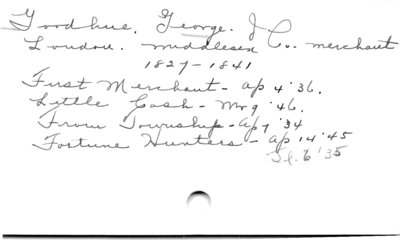 Goodhue. George. J.
London. Middlesex Co. merchant
1827-1841
First Merchant - Ap 4 '36.
Little Cash - Mr 9 '46.
From Township - Ap 7 '34
Fortune Hunters - Ap 14 '45
6 '35